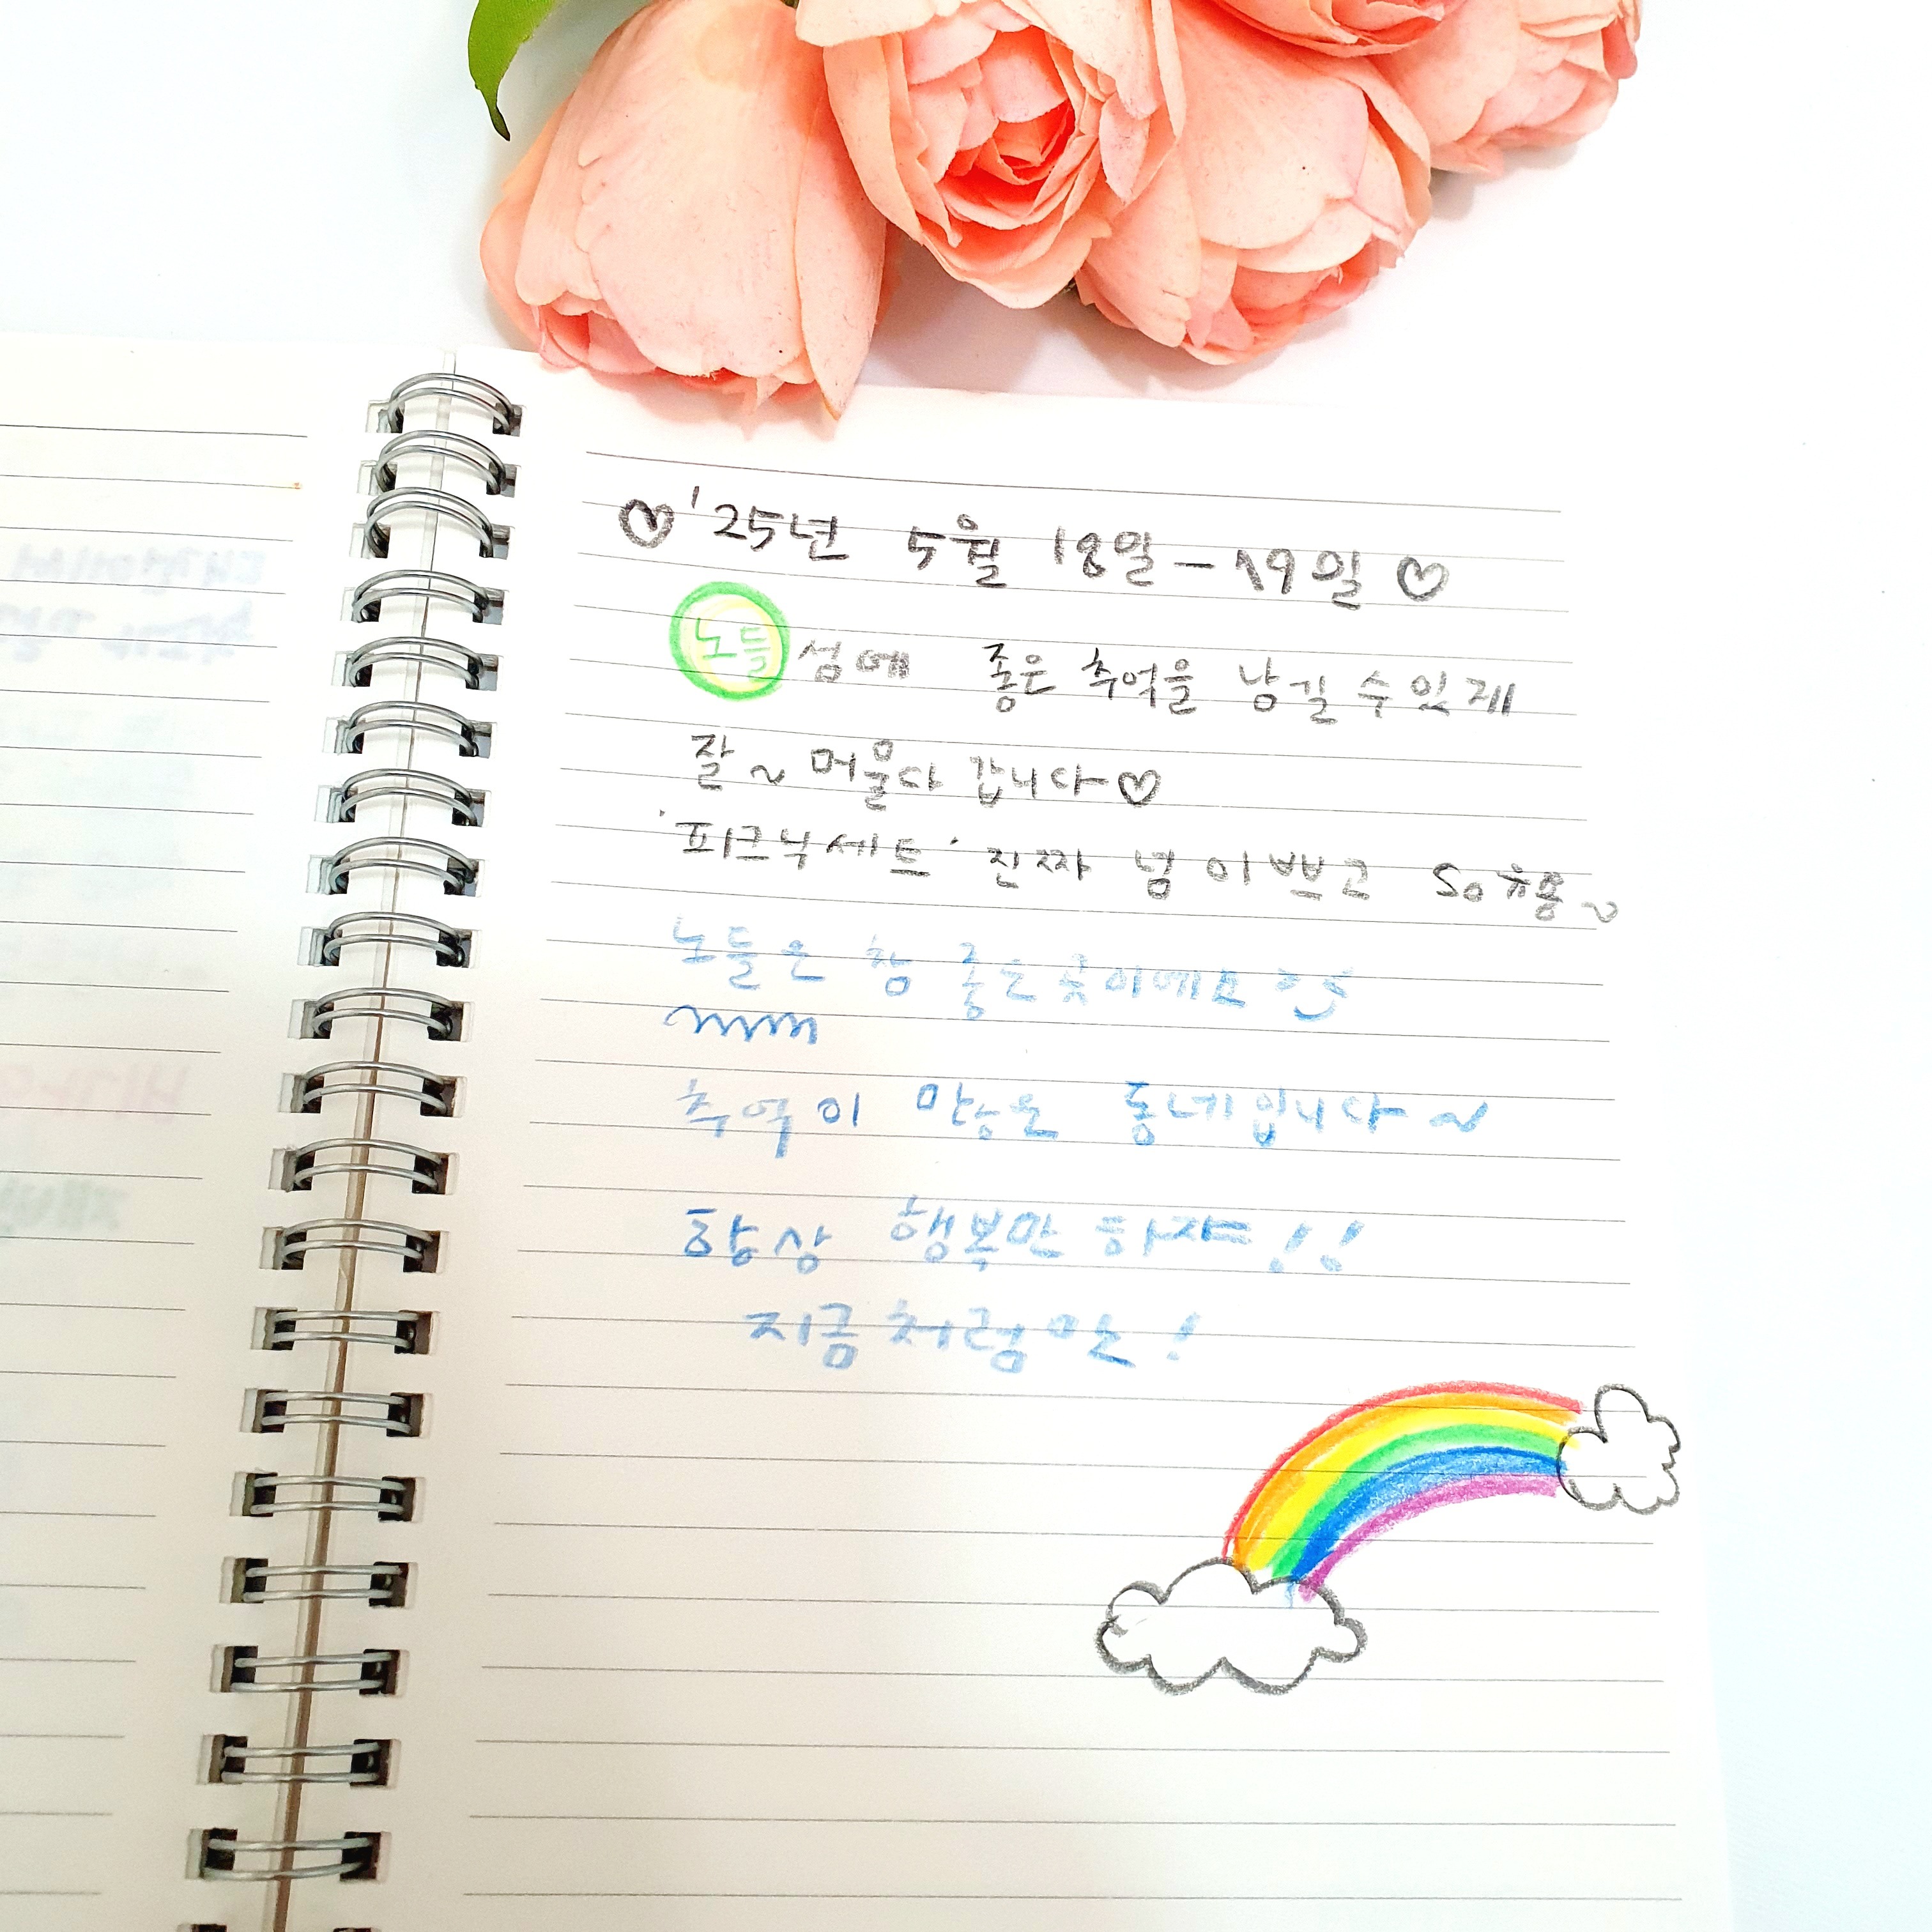 ♡'25년 5월 18일-19일♡
노들섬에 좋은 추억을 남길 수 있게
잘~ 머물다 갑니다♡
'피크닉세트' 진짜 넘 이쁘고 So 귀욤~
노들은 참 좋은곳이에요
추억이 많은 동네입니다~
항상 행복만 하자!!
지금처럼만!